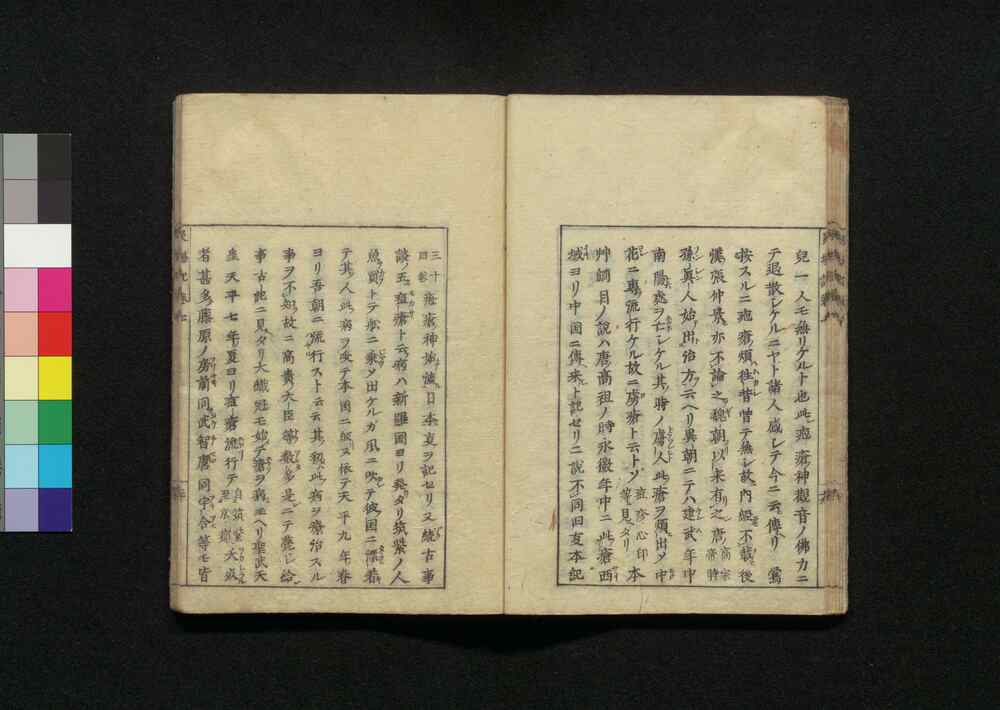 兒一人モ無リケルト也此疱瘡神觀音ノ佛力ニ
テ退散シケルニヤト諸人感シテ今ニ云傳リ 竊
按スルニ疱瘡煩往昔曽テ無シ故内經不載後
漢張仲景亦不論之魏朝以来有之唐高宗時
孫真人始出治方云ヘリ異朝ニテハ建武年中
南陽
其時ノ虜人此瘡ヲ煩出メ中
花ニ專流行ケル故ニ虜瘡ト云トソ痘疹心印等見タリ本
艸綱目ノ說ハ唐高祖ノ時永徽年中ニ此瘡西
域ヨリ中国ニ傳来ト記セリ二說不同旧支本記
三十四卷疱瘡神
日本支ヲ記セリ又續古事
談ノ五痘瘡ト云病ハ新羅国ヨリ発タリ筑紫ノ人
魚買トテ船ニ乗メ出ケルガ風ニ吹テ彼国ニ漂着
テ其人此病ヲ受テ本国ニ皈ス依テ天平九年春
ヨリ吾朝ニ流行スト云云其初此病ヲ療治スル
事ヲ不知故ニ高貴ノ大臣等数多是ニテ薨シ給
事古記ニ見タリ大織冠モ始テ瘡ヲ病玉ヘリ聖武天
皇天平七年夏ヨリ痘瘡流行テ自筑紫至京都大
者甚多藤原ノ房前同武智麿同宇合等モ皆